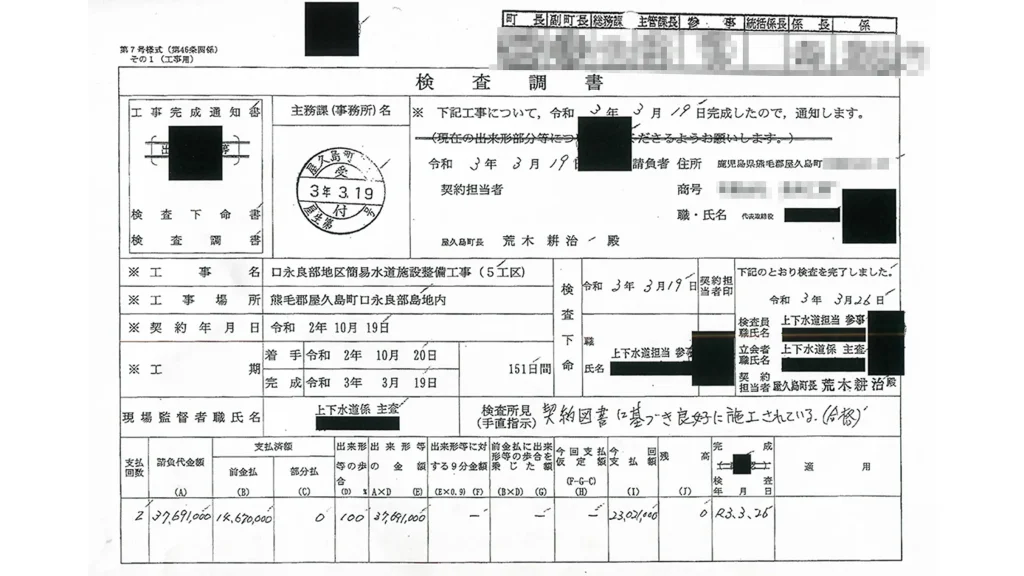 町長 副町長 総務課 主管課長 参事 統括係長 係長 係
第7号様式(第46条関係)
その1(工事用)
検査調書
工事完成通知書
検査下命書
検査調書
主務課(事務所)名
屋久島町
受
3年3.19
付
※ 下記工事について,令和 3年 3月 19日完成したので,通知します。
令和 3年 3月 19
請負者 住所 鹿児島県熊毛郡屋久島町
契約担当者
商号
職・氏名 代表取締役
屋久島町長 荒木耕治 殿
※工事名 口永良部地区簡易水道施設整備工事(5工区)
※工事場所 熊毛郡屋久島町口永良部島地内
※契約年月日 令和 2年10月19日
※工期
着手 令和 2年 10月 20日
完成 令和 3年 3月 19日
151日間
検査下命
令和 3年 3月19日
契約担当者印
職
氏名
上下水道担当 参事
下記のとおり検査を完了しました。
令和 3年 3月26日
検査員職氏名 上下水道担当 参事
立会者職氏名 上下水道係 主査
契約担当者 屋久島町長 荒木耕治 殿
現場監督者職氏名 上下水道係 主査
検査所見(手直指示) 契約図書に基づき良好に施工されている。(合格)
支払回数
請負代金額 (A)
支払済額
前金払 (B)
部分払 (C)
出来形等の歩合 (D) %
出来形等の金額 A×D (E)
出来形等に対する9分金額 (E×0.9) (F)
前金払に出来形等の歩合を乗じた額 (B×D) (G)
今回支払仮定額 (F-G-C) (H)
今回支払額 (I)
残高 (J)
完成
検査
年月日
適用
2 37,691,000 14,670,000 0 100 37,691,000 — — — 23,021,000 0 R3.3.26